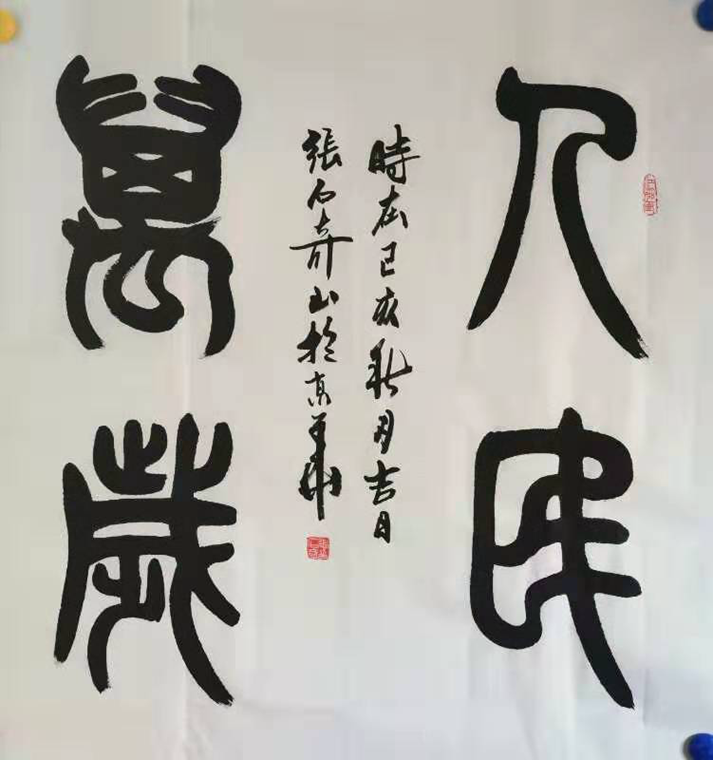 人民
萬歲
時在己亥秋月吉日
張石奇山於京華